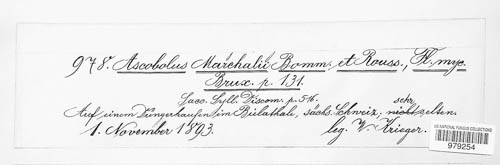 978. Ascobolus Marchalii Bomm. et Rouss., Fl. myc.
Brux. p. 131.
Sacc. Syll. Discom. p. 516.
Auf einem Düngerhaufen im Bielathale, sächs. Schweiz, nicht sehr selten.
1. November 1893. leg. W. Krieger.
US NATIONAL FUNGUS COLLECTIONS
979254